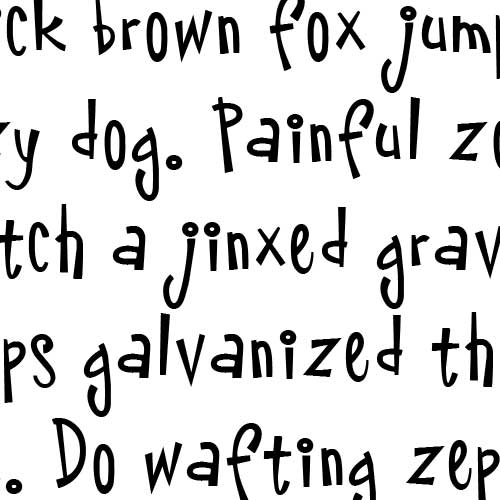 ick brown fox jump
zy dog. Painful zo
tch a jinxed grav
ps galvanized th
. Do wafting zep